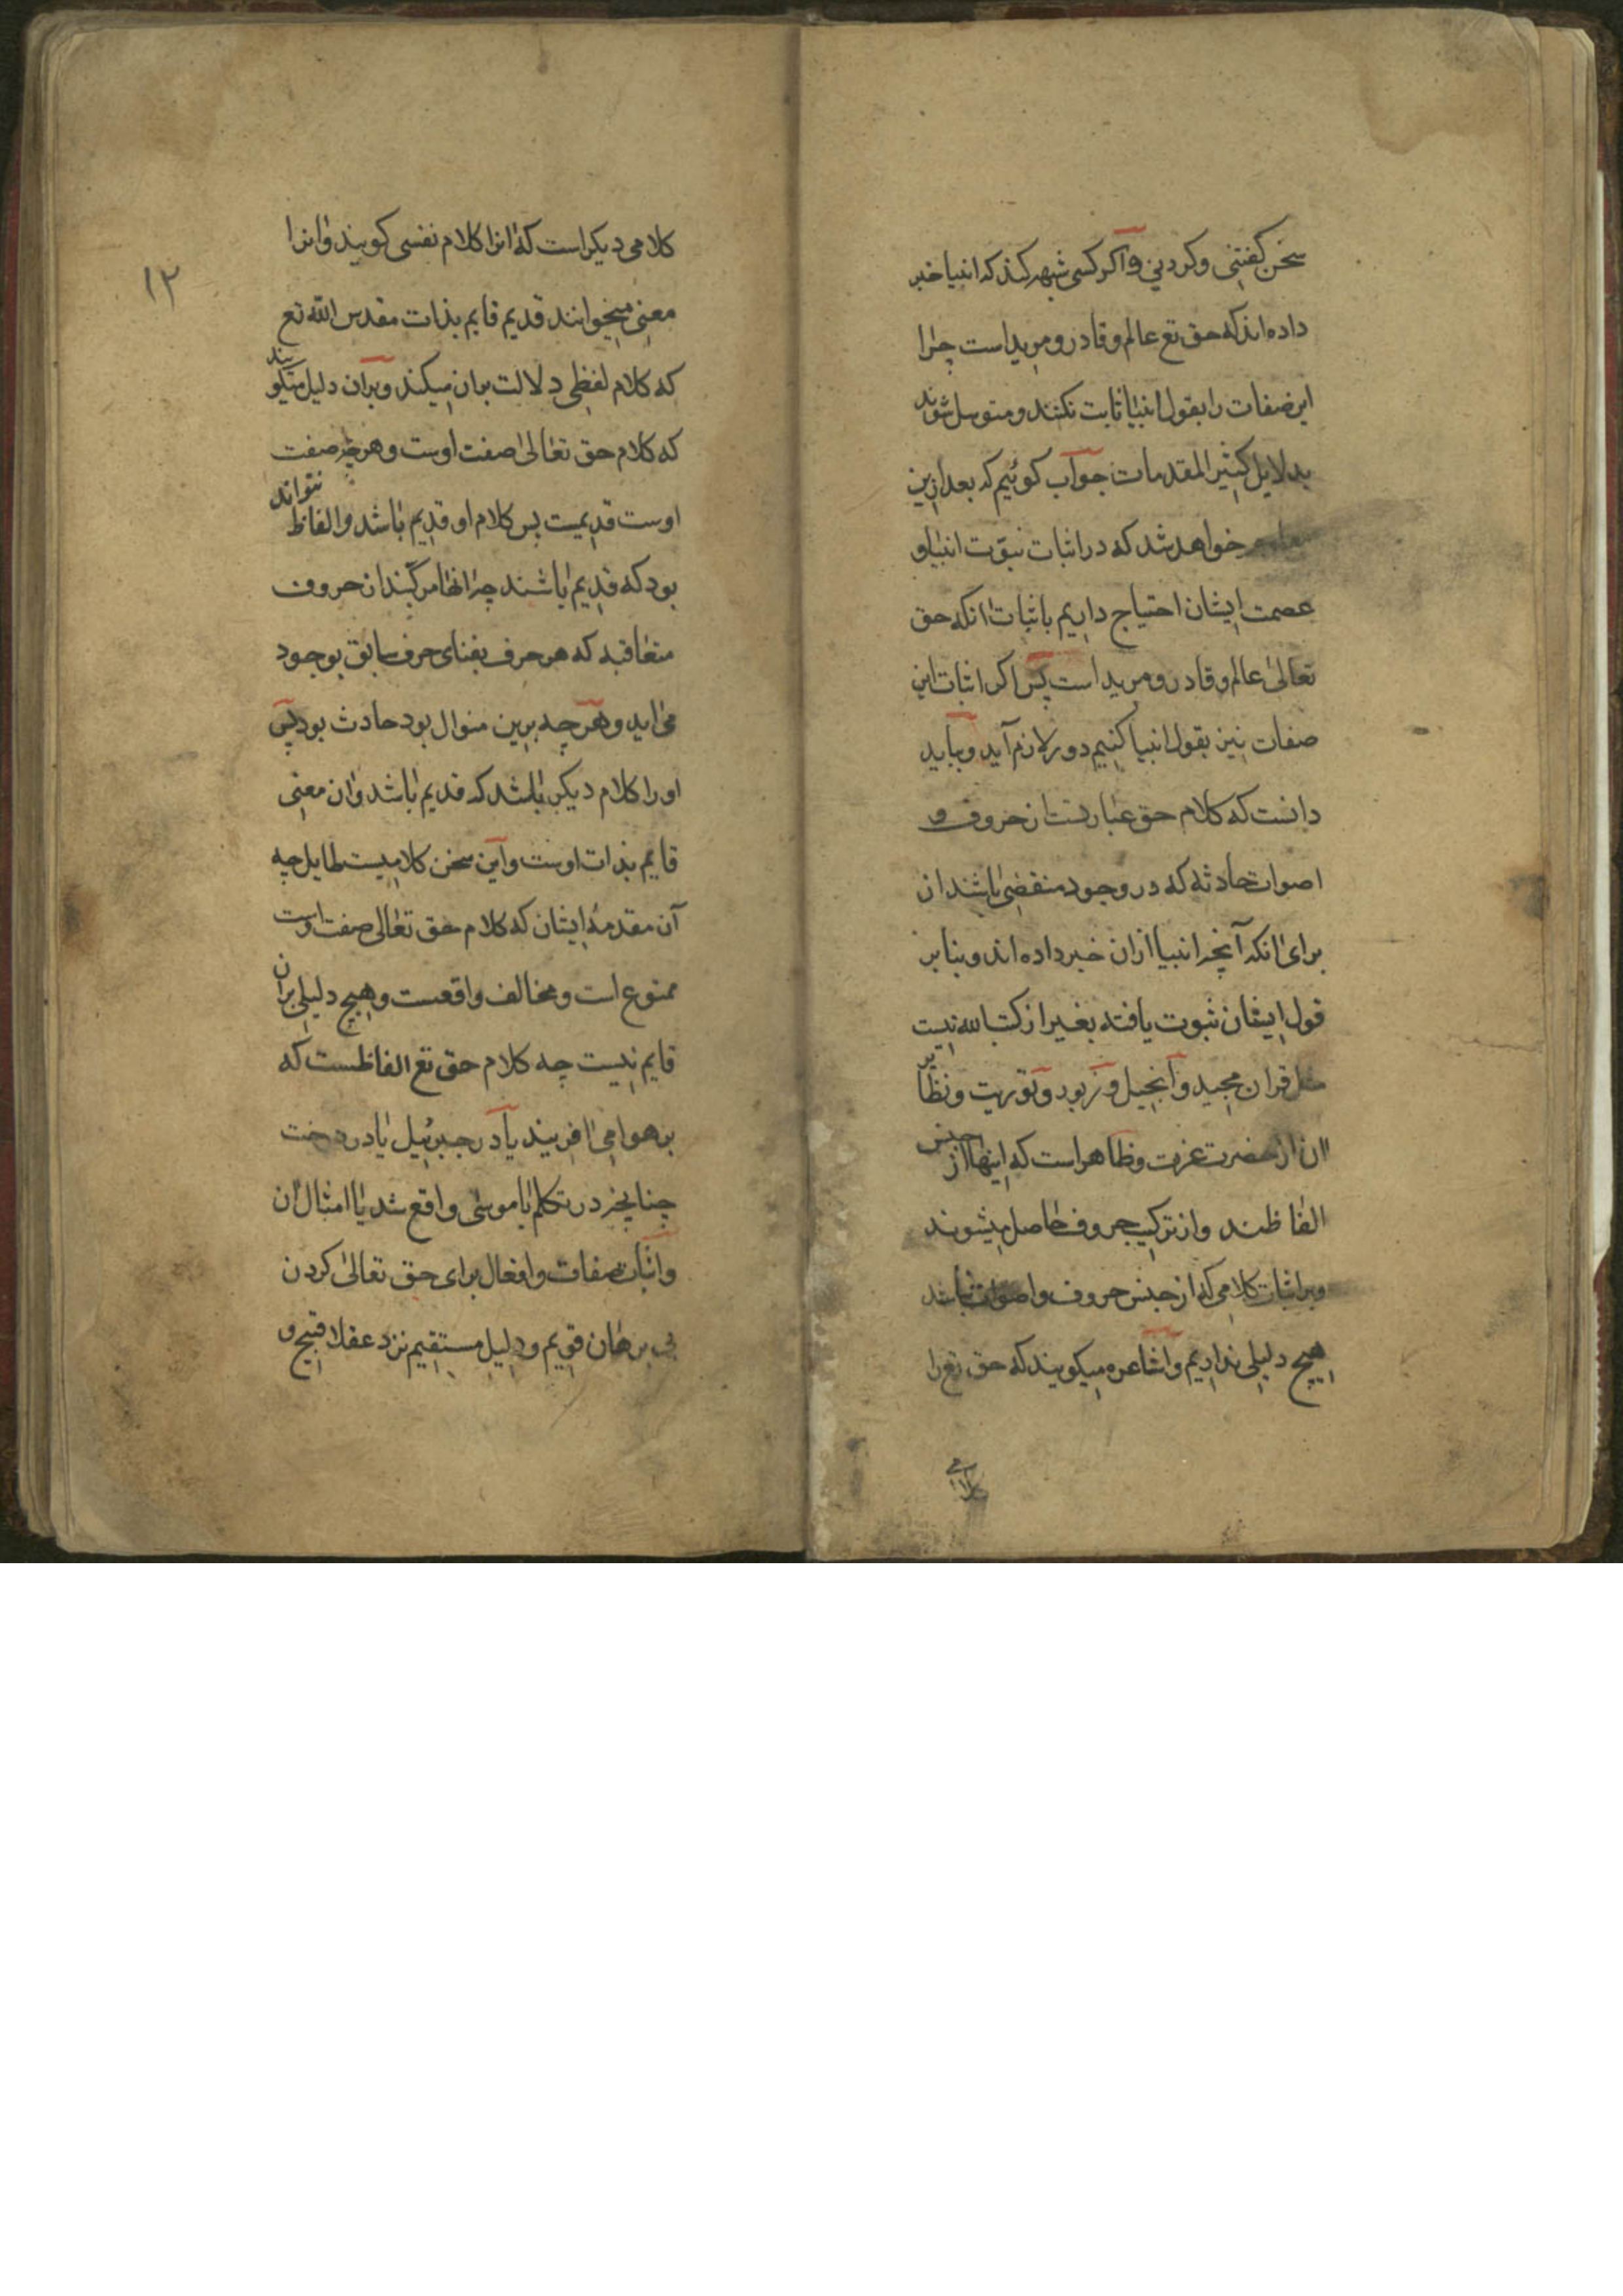 سخن کفتنی و کردنی و اکر کسی شبهه کند که انبیا خبر
داده اند که حق تع عالم و قادر و مرید است چرا
این صفات را بقول انبیا ثابت نکنند و متوسل شوند
بدلایل کثیر المقدمات جواب کوئیم که بعد ازین
خواهد شد که در اثبات نبوت انبیا و
عصمت ایشان احتیاج داریم باثبات انکه حق
تعالی عالم و قادر و مرید است پس اکر اثبات این
صفات نیز بقول انبیا کنیم دور لازم آید و بباید
دانست که کلام حق عبارتست از حروف و
اصوات حادثه که در وجود منقضی باشند از
برای انکه آنچه انبیا ازان خبر داده اند و بنا بر
قول ایشان ثبوت یافته بغیر از کتب الله نیست
مثل قران مجید و انجیل و زبور و توریت و نظایر
ان از حضرت عزت و ظاهر است که اینها از جنس
الفاظند و از ترکیب حروف حاصل میشوند
و بر اثبات کلامی که از جنس حروف و اصوات نباشد
هیچ دلیلی نداریم و اشاعره میکویند که حق تع را
کلامی
۱۲
کلامی دیکر است که انرا کلام نفسی کویند و انرا
معنی میخوانند قدیم قایم بذات مقدس الله تع
که کلام لفظی دلالت بران میکند و بران دلیل میکویند
که کلام حق تعالی صفت اوست و هر چه صفت
اوست قدیمست پس کلام او قدیم باشد و الفاظ نتواند
بود که قدیم باشند چرا انها مرکبند از حروف
متعاقبه که هر حرف بفنای حرف سابق بوجود
می اید و هر چه برین منوال بود حادث بود پس
او را کلام دیکر باشد که قدیم باشد و ان معنی
قایم بذات اوست و این سخن کلامیست لاطایل چه
آن مقدمه ایشان که کلام حق تعالی صفت اوست
ممنوع است و مخالف واقعست و هیچ دلیلی بران
قایم نیست چه کلام حق تع الفاظست که
بر هوا می افریند یا در جبرئیل یا در درخت
چنانچه در تکلم با موسی واقع شد یا امثال ان
و اثبات صفات و افعال برای حق تعالی کردن
بی برهان قویم و دلیل مستقیم نزد عقلا قبیح و